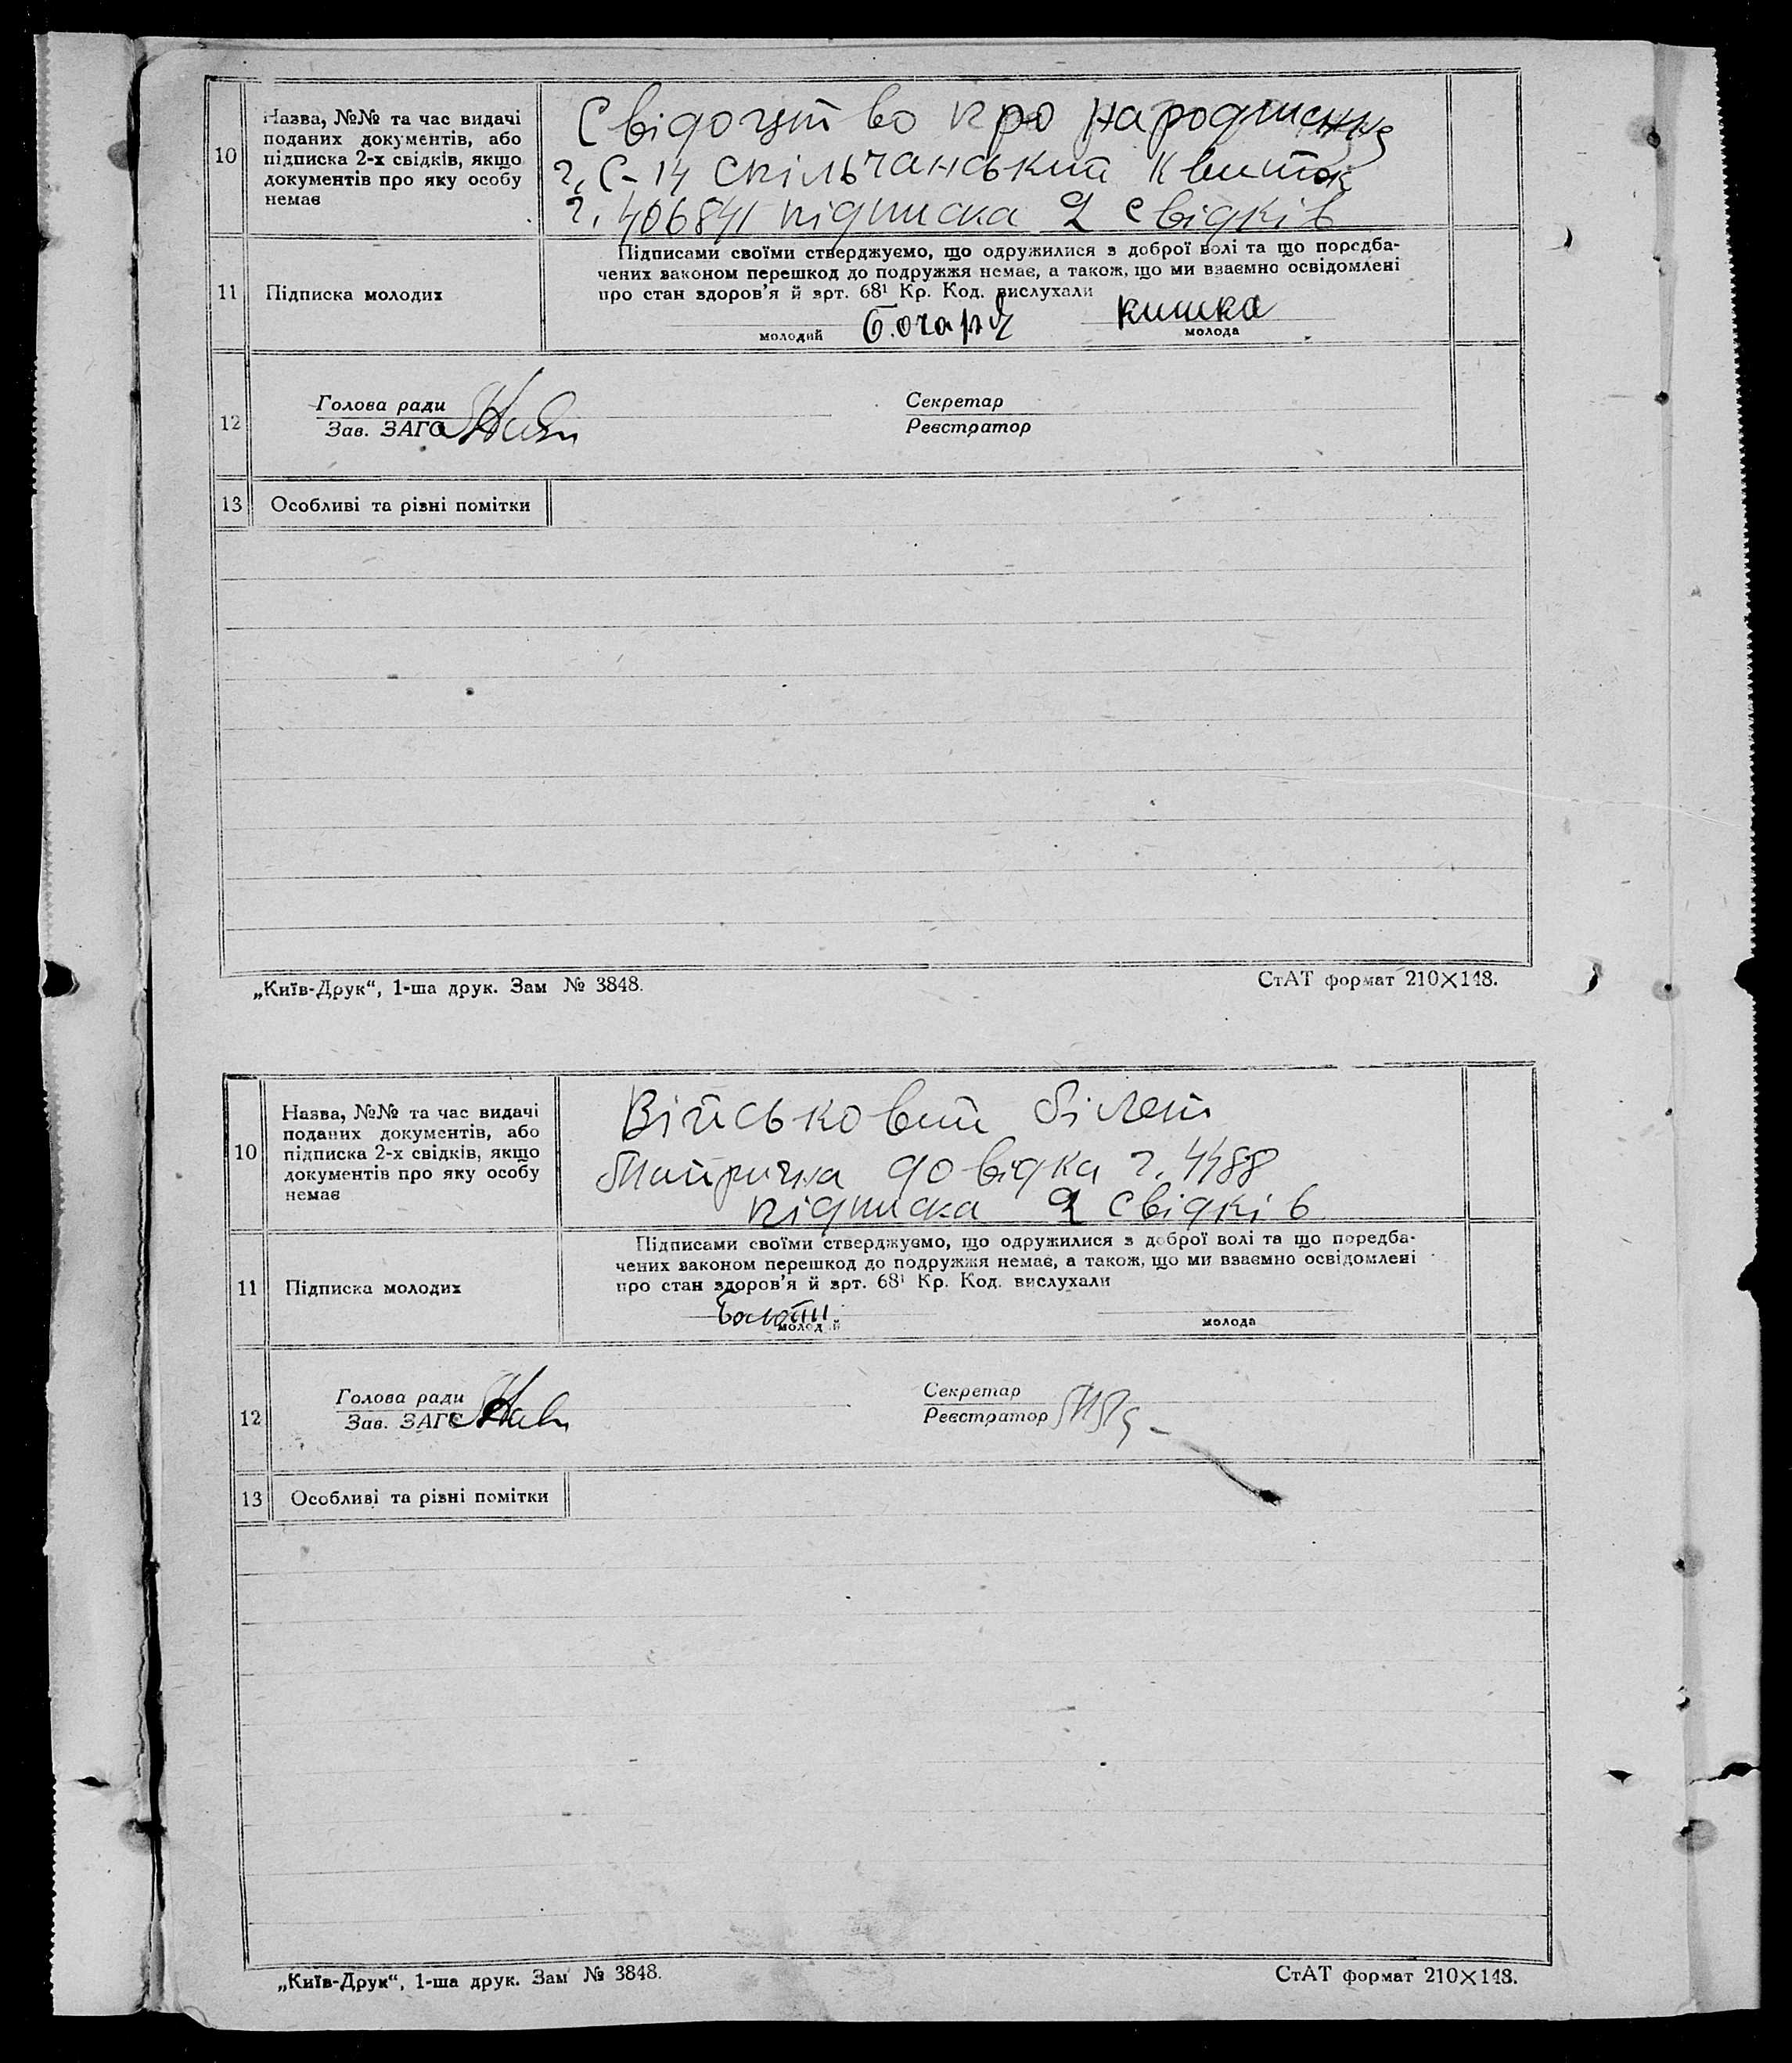 10
Назва, №№ та час видачі
поданих документів, або
підписка 2-х свідків, якщо
документів про яку особу
немає
Свідоцтво про народження
ч. С-14 спільчанський квиток
ч. 406841 підписка 2 свідків
11
Підписка молодих
Підписами своїми стверджуємо, що одружилися з доброї волі та що передба-
чених законом перешкод до подружжя немає, а також, що ми взаємно освідомлені
про стан здоров'я й арт. 68¹ Кр. Код. вислухали
молодий
кишка
молода
12
Голова ради
Зав. ЗАГС
Секретар
Реєстратор
13
Особливі та різні помітки
„Київ-Друк“, 1-ша друк. Зам № 3848.
СтАТ формат 210×148.
10
Назва, №№ та час видачі
поданих документів, або
підписка 2-х свідків, якщо
документів про яку особу
немає
Військовий білет
довідка ч. 4488
підписка 2 свідків
11
Підписка молодих
Підписами своїми стверджуємо, що одружилися з доброї волі та що передба-
чених законом перешкод до подружжя немає, а також, що ми взаємно освідомлені
про стан здоров'я й арт. 68¹ Кр. Код. вислухали
молодий
молода
12
Голова ради
Зав. ЗАГС
Секретар
Реєстратор
13
Особливі та різні помітки
„Київ-Друк“, 1-ша друк. Зам № 3848.
СтАТ формат 210×148.